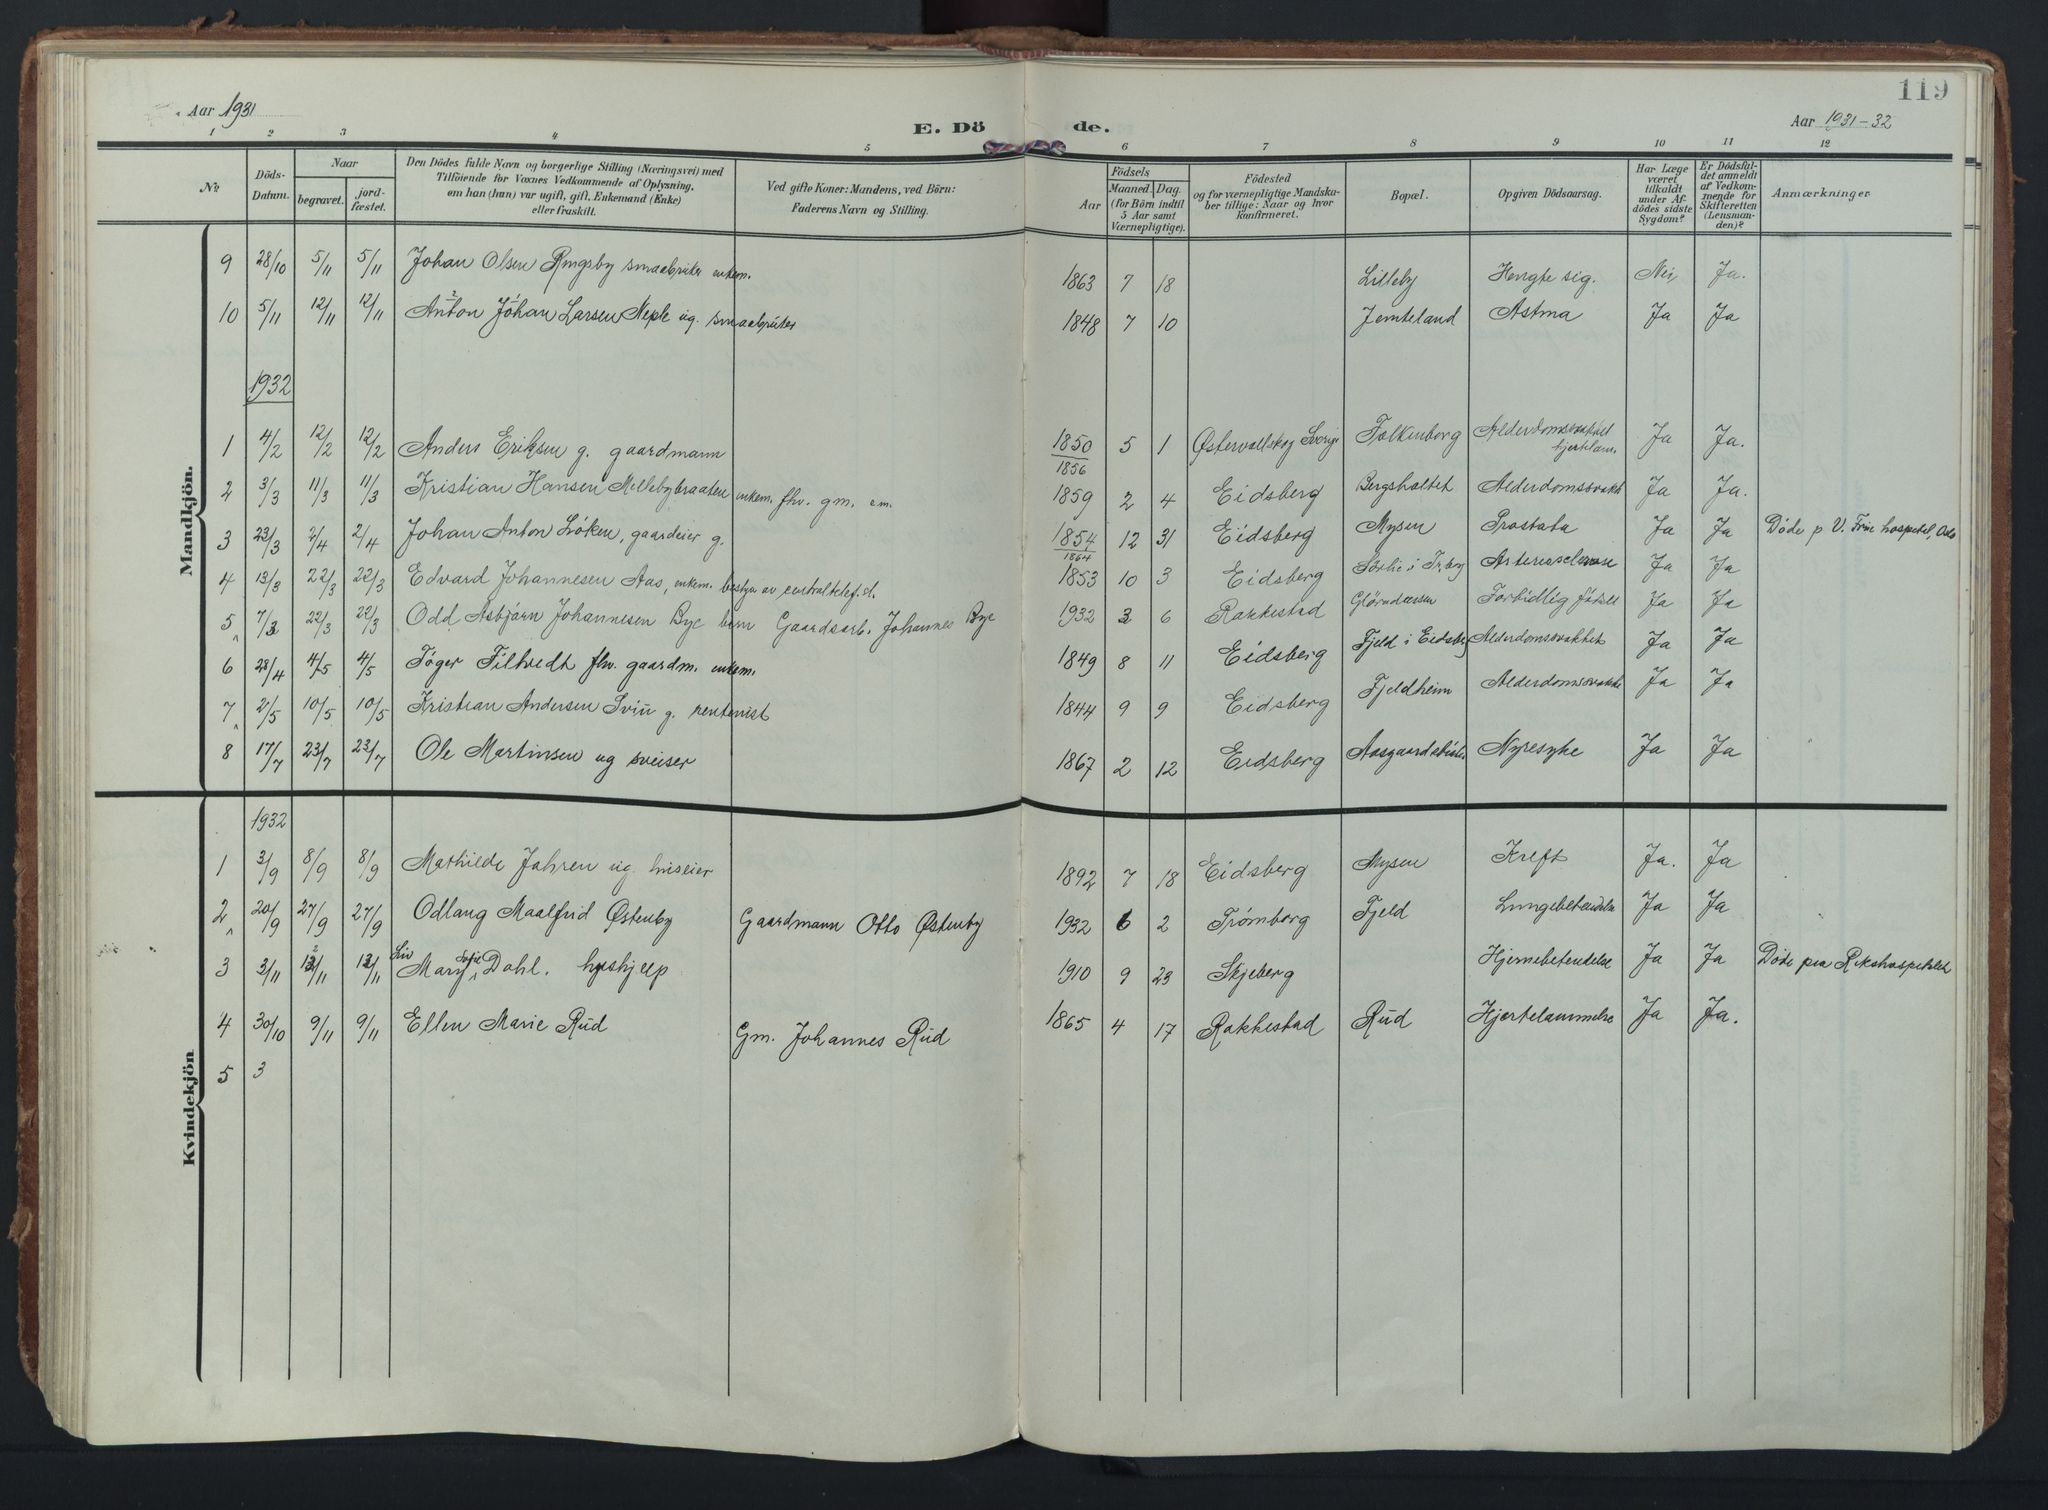 119
Aar 1931
E. Döde.
Aar 1931-32
1 2 3 4 5 6 7 8 9 10 11 12
No.
Döds-Datum.
Naar
begravet.
jord-fæstet.
Den Dödes fulde Navn og borgerlige Stilling (Næringsvei) med
Tilföiende for Voxnes Vedkommende af Oplysning,
om han (hun) var ugift, gift, Enkemand (Enke)
eller fraskilt.
Ved gifte Koner: Mandens, ved Börn:
Faderens Navn og Stilling.
Födsels
Aar
Maaned. Dag.
(for Börn indtil
5 Aar samt
Værnepligtige).
Födested
og for værnepligtige Mandska-
ber tillige: Naar og hvor
konfirmeret.
Bopæl.
Opgiven Dödsaarsag.
Har Læge
været
tilkaldt
under Af-
dödes sidste
Sygdom?
Er Dödsfal-
det anmeldt
af Vedkom-
mende for
Skifteretten
(Lensman-
den)?
Anmærkninger
Mandkjön.
9 28/10 5/11 5/11 Johan Olsen Ringsby smaabruker enkem. 1863 7 18 Lilleby Hengte sig. Nei, Ja.
10 5/11 12/11 12/11 Anton Johan Larsen Neple ug. smaabruker 1848 7 10 Jemteland Astma Ja Ja
1932
1 4/2 12/2 12/2 Anders Eriksen g. gaardmann 1850 1856 5 1 Østervallskog Sverige Folkenborg Alderdomssvakhet Ja Ja.
2 3/3 11/3 11/3 Kristian Hansen Millebybraaten enkem. fhv. gm. 1859 2 4 Eidsberg Bergsholtet Alderdomssvakh Ja Ja.
3 23/3 2/4 2/4 Johan Anton Løken, gaardeier g. 1854 1864 12 31 Eidsberg Mysen Prostata Ja Ja Døde p V. Frue hospital, Oslo
4 13/3 22/3 22/3 Edvard Johannesen Aas, enkem. bestyr av centraltelef. 1853 10 3 Eidsberg Ja Ja
5 7/3 22/3 22/3 Odd Asbjørn Johannesen Bye barn Gaardsarb. Johannes Bye 1932 3 6 Rakkestad Fortidlig født Ja Ja
6 28/4 4/5 4/5 Tøger Filtvedt fhv. gaardm. enkem. 1849 8 11 Eidsberg Fjeld i Eidsberg Alderdomssvakhet Ja Ja
7 2/5 10/5 10/5 Kristian Andersen Sviu g. rentenist 1844 9 9 Eidsberg Fjeldheim Alderdomssvakhe Ja Ja
8 17/7 23/7 23/7 Ole Martinsen ug sveiser 1867 2 12 Eidsberg Nyresyke Ja Ja
Kvindekjön
1932
1 3/9 8/9 8/9 Mathilde Jahren ug. huseier 1892 7 18 Eidsberg Mysen Kreft Ja. Ja
2 20/9 27/9 27/9 Odlaug Maalfrid Østenby Gaardmann Otto Østenby 1932 6 2 Trømborg Fjeld Lungebetendelse Ja Ja
3 3/11 12/11 12/11 Liv Mary Sofie Dahl. hushjelp 1910 9 23 Skjeberg Hjernebetendelse Ja Ja Døde paa Rikshospitalet
4 30/10 9/11 9/11 Ellen Marie Rud Gm. Johannes Rud 1865 4 17 Rakkestad Rud Hjertelammelse Ja Ja.
5 3